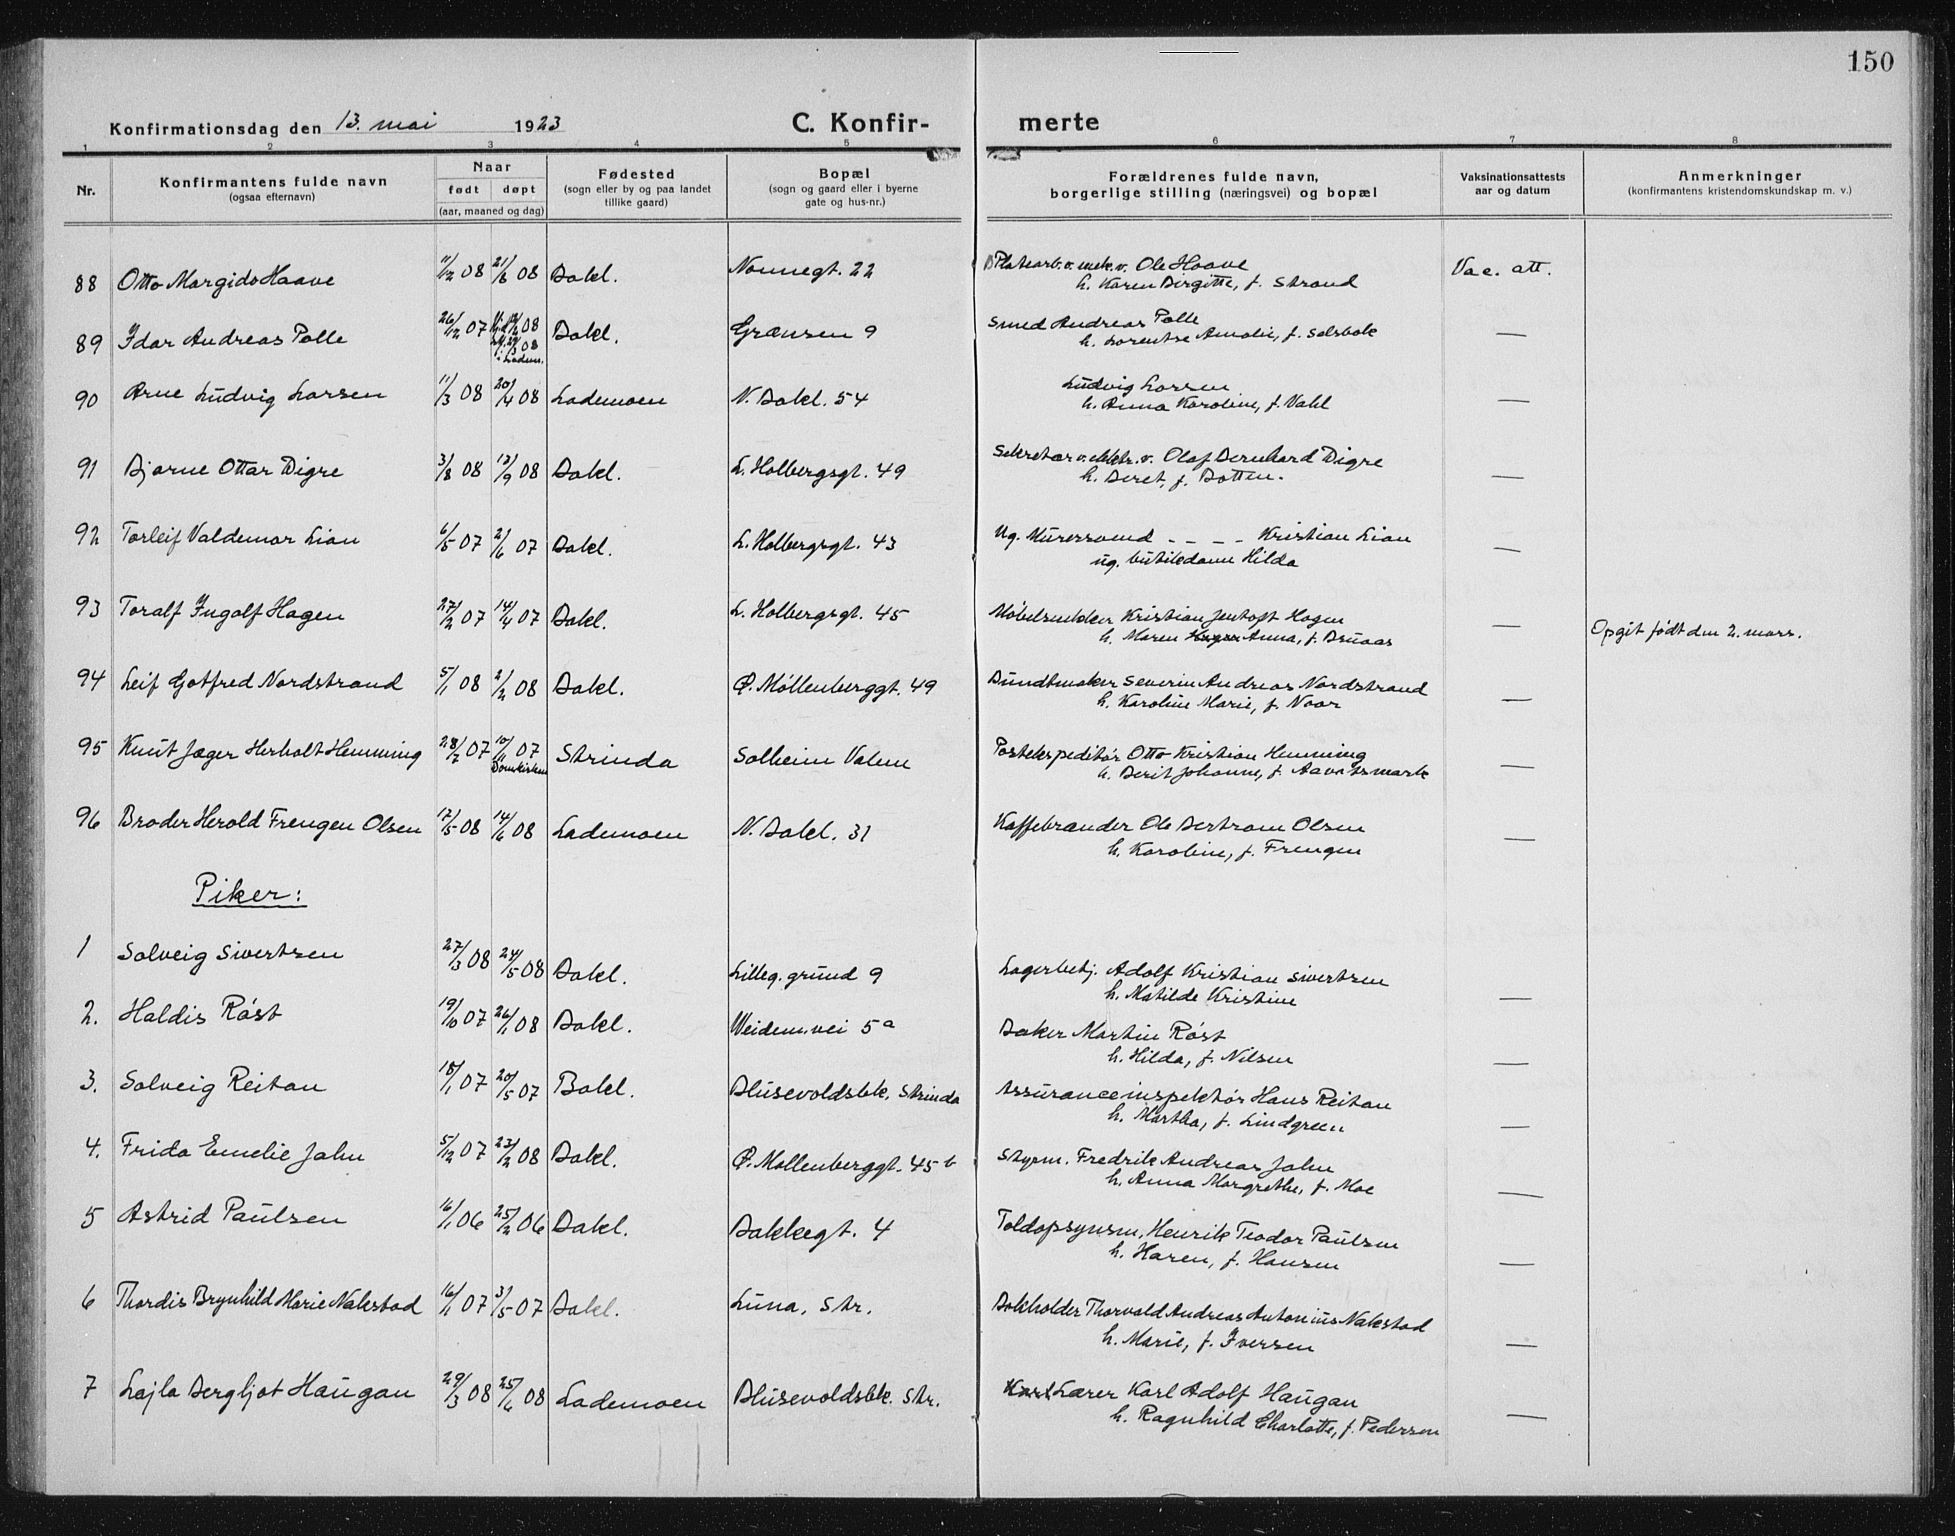 150
Konfirmationsdag den 13. mai 1923 C. Konfir- merte
1 2 3 4 5 6 7 8
Nr. Konfirmantens fulde navn (ogsaa efternavn) Naar født døpt (aar, maaned og dag) Fødested (sogn eller by og paa landet tillike gaard) Bopæl (sogn og gaard eller i byerne gate og hus-nr.) Forældrenes fulde navn, borgerlige stilling (næringsvei) og bopæl Vaksinationsattests aar og datum Anmerkninger (konfirmantens kristendomskundskap m. v.)
88 Otto Margido Haave 11/12 08 21/8 08 Bakl. Nonnegt. 22 Platearb. v. mek. v. Ole Haave Vac. att.
h. Karen Birgitte, f. Strand
89 Idar Andreas Polle 26/12 07 08 Bakl. Grænsen 9 Smed Andreas Polle —
29/3 08 i Ladem. h. Lorentse Amalie, f. Selsbak
90 Arne Ludvig Larsen 11/3 08 20/4 08 Lademoen N. Bakl. 54 Ludvig Larsen —
h. Anna Karoline, f. Vahl
91 Bjarne Ottar Digre 3/8 08 13/9 08 Bakl. L. Holbergsgt. 49 Sekretær v. elektr. v. Olaf Bernhard Digre —
h. Beret, f. Botten.
92 Torleif Valdemar Lian 6/5 07 2/6 07 Bakl. L. Holbergsgt. 43 Ug. Murersvend - - - - Kristian Lian —
ug. butikdame Hilda
93 Toralf Ingolf Hagen 27/2 07 14/4 07 Bakl. L. Holbergsgt. 45 Møbelsnekker Kristian Jentoft Hagen — Opgit født den 2. mars.
h. Maren Anna, f. Bruaas
94 Leif Gotfred Nordstrand 5/1 08 2/2 08 Bakl. Ø. Møllenberggt. 49 Bundtmaker Severin Andreas Nordstrand —
h. Karoline Marie, f. Naar
95 Knut Jæger Herbolt Hemming 28/7 07 10/11 07 Domkirken Strinda Solheim Valen Postekspeditør Otto Kristian Hemming —
h. Berit Johanne, f. Aavatsmark
96 Broder Herold Frengen Olsen 17/5 08 14/6 08 Lademoen N. Bakl. 31 Kaffebrænder Ole Bertram Olsen —
h. Karoline, f. Frengen
Piker:
1 Solveig Sivertsen 27/3 08 24/5 08 Bakl. Lilleg. grund 9 Lagerbetj. Adolf Kristian Sivertsen —
h. Matilde Kristine
2. Haldis Røst 19/10 07 26/1 08 Bakl. Weidem. vei 5a Baker Martin Røst —
h. Hilda, f. Nilsen
3. Solveig Reitan 18/1 07 20/5 07 Bakl. Blusevoldsbk, Strinda Assuranceinspektør Hans Reitan —
h. Martha, f. Lindgreen
4. Frida Emelie Jahn 5/12 07 23/2 08 Bakl. Ø. Møllenberggt. 45 b Styrm. Fredrik Andreas Jahn —
h. Anna Margrethe, f. Moe
5 Astrid Paulsen 16/1 06 25/2 06 Bakl. Bakkegt. 4 Toldopsynsm, Henrik Teodor Paulsen —
h. Karen, f. Hansen
6 Thordis Brynhild Marie Nakstad 16/1 07 3/5 07 Bakl. Luna, Str. Bokholder Thorvald Andreas Antonius Nakstad —
h. Marie, f. Iversen
7 Lajla Bergljot Haugan 29/3 08 25/6 08 Lademoen Blusevoldsbk. Str. Karl Lærer Karl Adolf Haugan —
h. Ragnhild Charlotte, f. Pedersen